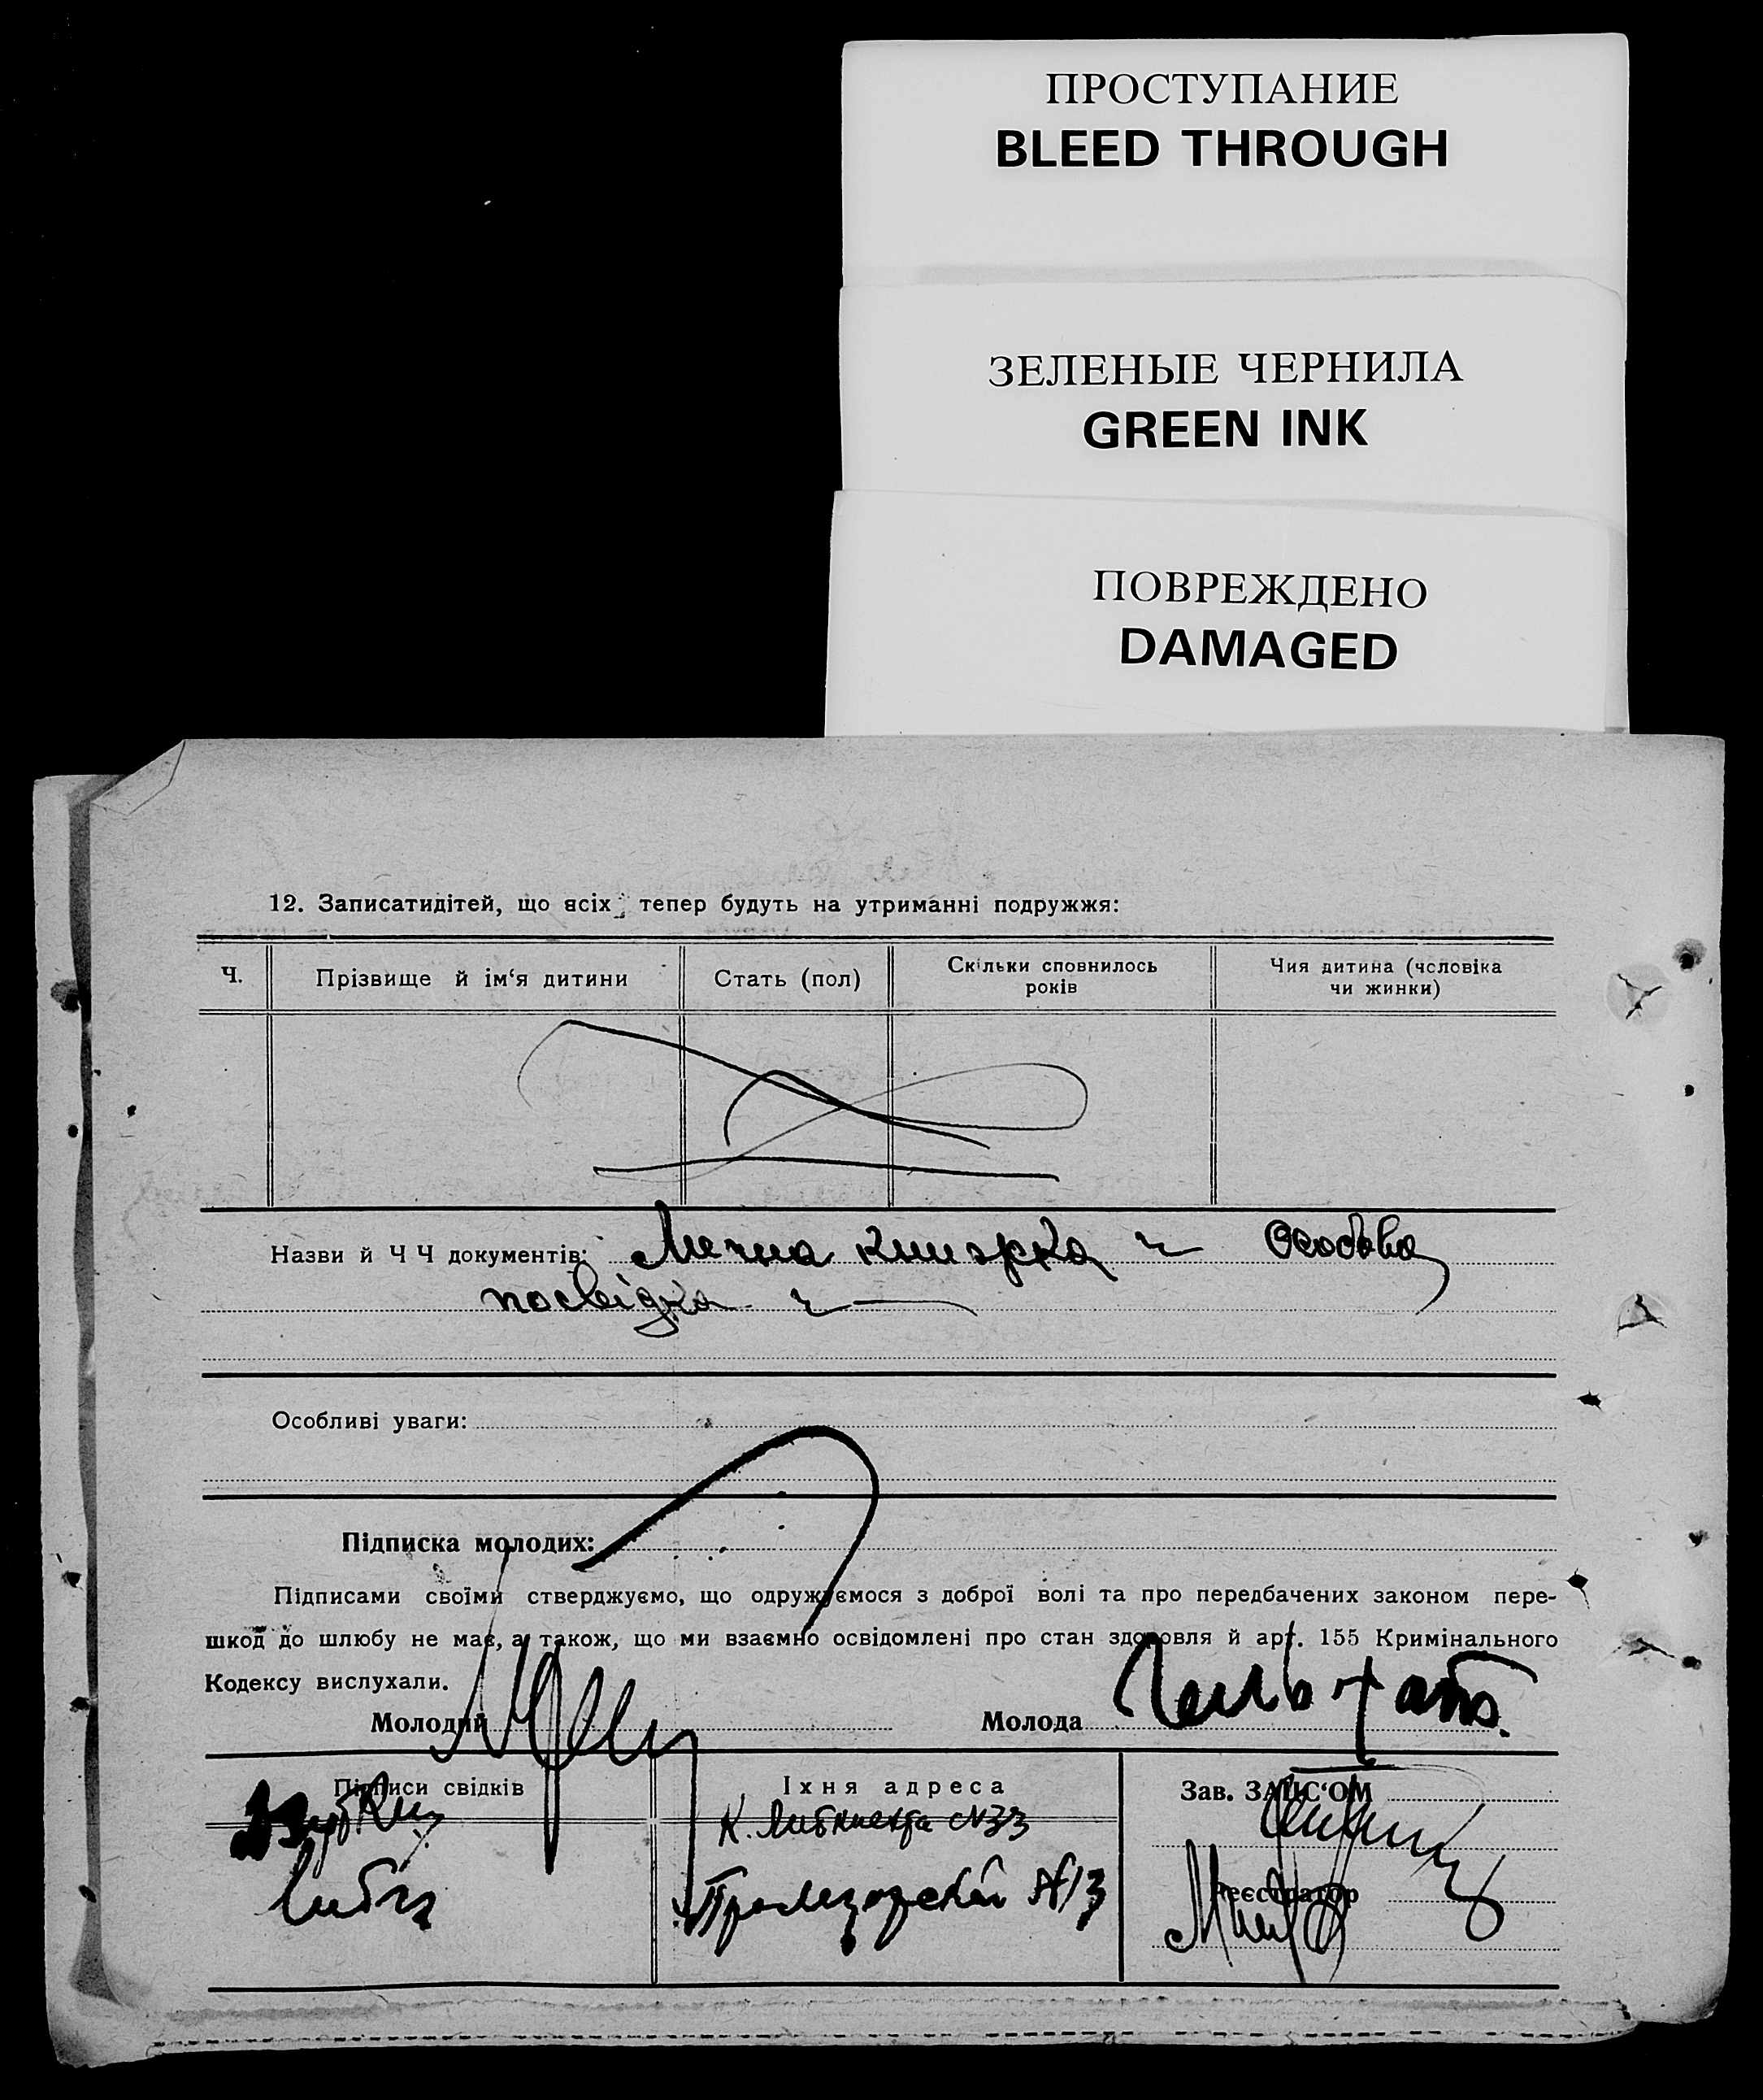 ПРОСТУПАНИЕ
BLEED THROUGH
ЗЕЛЕНЫЕ ЧЕРНИЛА
GREEN INK
ПОВРЕЖДЕНО
DAMAGED
12. Записатидітей, що всіх тепер будуть на утриманні подружжя:
Ч.
Прізвище й ім‘я дитини
Стать (пол)
Скільки сповнилось
років
Чия дитина (чоловіка
чи жинки)
Назви й Ч Ч документів: книжка Особова
посвідка
Особливі уваги:
Підписка молодих:
Підписами своїми стверджуємо, що одружуємося з доброї волі та про передбачених законом пере-
шкод до шлюбу не має, а також, що ми взаємно освідомлені про стан здоровля й арт. 155 Кримінального
Кодексу вислухали.
Молодий
Молода
Підписи свідків
Їхня адреса
Зав. ЗАГС‘ОМ
К. Либкнехта №33
№13
Реєстратор